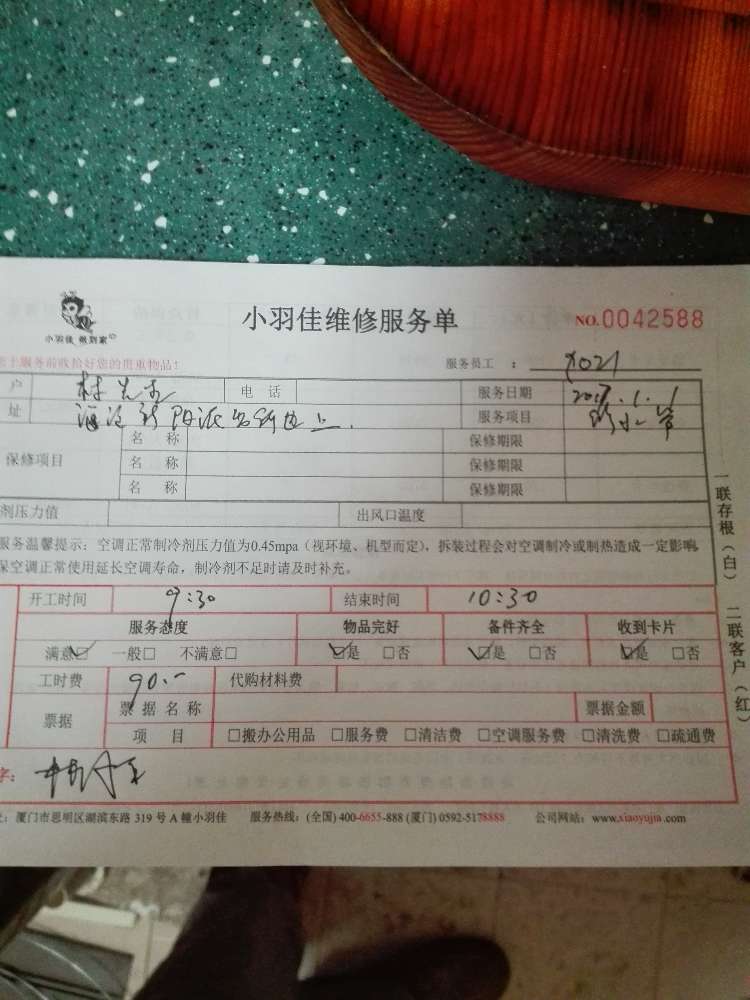 小羽佳维修服务单
NO.0042588
小羽佳 做到家
服务前收拾好您的贵重物品!
服务员工:
户 林先生 电 话 服务日期 2017.1.1
址 服务项目
保修项目 名 称 保修期限
名 称 保修期限
名 称 保修期限
剂压力值 出风口温度
服务温馨提示:空调正常制冷剂压力值为0.45mpa(视环境、机型而定),拆装过程会对空调制冷或制热造成一定影响
保空调正常使用延长空调寿命,制冷剂不足时请及时补充。
开工时间 9:30 结束时间 10:30
服务态度 物品完好 备件齐全 收到卡片
满意☑ 一般□ 不满意□ ☑是 □否 ☑是 □否 ☑是 □否
工时费 90.- 代购材料费
票据 票据名称 票据金额
项 目 □搬办公用品 □服务费 □清洁费 □空调服务费 □清洗费 □疏通费
字:
:厦门市思明区湖滨东路 319 号 A 幢小羽佳 服务热线:(全国) 400-6655-888 (厦门) 0592-5178888 公司网站:www.xiaoyujia.com
一联存根(白) 二联客户(红)